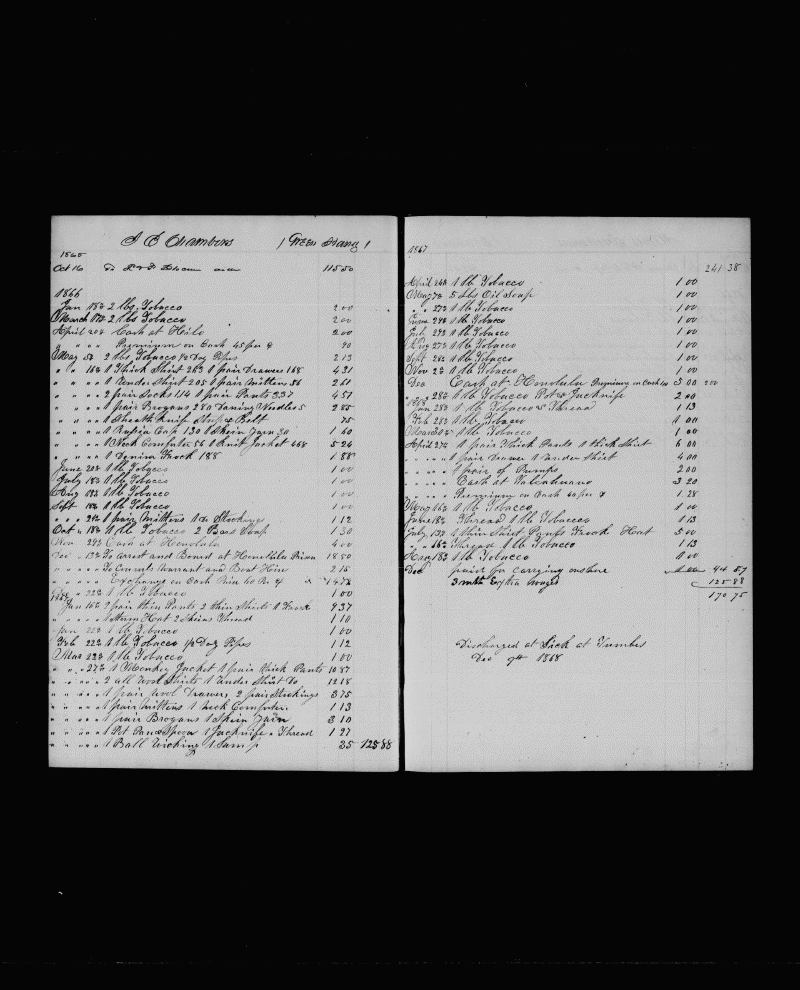 J E Chambers (Green Hand)
1865
Oct 16 To 115 50
1866
Jan 18th 2 lbs Tobacco 2 00
March 18th 2 lbs Tobacco 2 00
April 20th Cash at Hilo 2 00
" " " Premium on Cash 45 per % 90
May 5th 2 lbs Tobacco 1/2 Doz Pipes 2 13
" " 16th 1 Thick Shirt 263 1 pair Drawers 168 4 31
" " " " 1 Under Shirt 205 1 pair Mittens 56 2 61
" " " " 2 pair Socks 114 1 pair Pants 337 4 51
" " " " 1 pair Brogans 280 Darning Needles 5 2 85
" " " " 1 Sheath Knife Sheath & Belt 75
" " " " 1 Russia Cap 130 1 Skein Yarn 30 1 60
" " " " 1 Neck Comforter 56 1 Knit Jacket 468 5 24
" " " " 1 Denim Frock 188 1 88
June 20th 1 lb Tobacco 1 00
July 18th 1 lb Tobacco 1 00
Aug 18th 1 lb Tobacco 1 00
Sept 18th 1 lb Tobacco 1 00
" " " 24th 1 pair Mittens 1 Do Stockings 1 12
Oct " 18th 1 lb Tobacco 2 Bars Soap 1 30
Nov 29th Cash at Honolulu 4 00
Dec " 13th To arrest and Board at Honolulu Prison 18 50
" " " " To Consuls Warrant and Boat Hire 2 15
" " " " Exchange on Cash
Dec 22d 1 lb Tobacco 1 00
1867
Jan 15th 2 pair thin Pants 2 thin Shirts 1 Frock 9 37
" " " " Hat 2 Skeins Thread 1 10
Jan 22d 1 lb Tobacco 1 00
Feb 22d 1 lb Tobacco 1/2 Doz Pipes 1 12
Mar 22d 1 lb Tobacco 1 00
" " " 27th 1 Monkey Jacket 1 pair thick Pants 10 87
" " " " 2 all wool Shirts 1 Under Shirt Do 12 18
" " " " 1 pair Wool Drawers 2 pair Stockings 3 75
" " " " 1 pair Mittens 1 Neck Comforter 1 13
" " " " 1 pair Brogans 1 Skein Yarn 3 10
" " " " 1 Pot Pan & Spoon 1 Jacknife & Thread 1 27
" " " " 1 Ball Wicking 1 Lamp 35 125 88
1867
241 38
April 24th 1 lb Tobacco 1 00
May 7th 5 Lbs Oil Soap 1 00
" " 27th 1 lb Tobacco 1 00
June 24th 1 lb Tobacco 1 00
July 29th 1 lb Tobacco 1 00
Aug 27th 1 lb Tobacco 1 00
Sept 28th 1 lb Tobacco 1 00
Nov 2d 1 lb Tobacco 1 00
Dec Cash at Honolulu Premium on Cash 3 00 2 00
" " 28th 1 lb Tobacco Pot & Jacknife 2 00
1868
Jan 28th 1 lb Tobacco & Thread 1 13
Feb 28th 1 lb Tobacco 1 00
Mar 30th 1 lb Tobacco 1 00
April 27th 1 pair Thick Pants 1 thick Shirt 6 00
" " " " 1 pair Drawers 1 Under Shirt 4 00
" " " " 1 pair of Pumps 2 00
" " " " Cash at Talcahuano 3 20
" " " " Premium on Cash 40 per % 1 28
May 16th 1 lb Tobacco 1 00
June 18th Thread 1 lb Tobacco 1 13
July 13th 1 thin Shirt Pants Frock Hat 5 00
" " 16th Thread 1 lb Tobacco 1 13
Nov 18th 1 lb Tobacco 1 00
Dec paid for carrying onshore 44 57
3 mths Extra Wages 125 88
170 75
Discharged at Sick at Tumbes
Dec 9th 1868